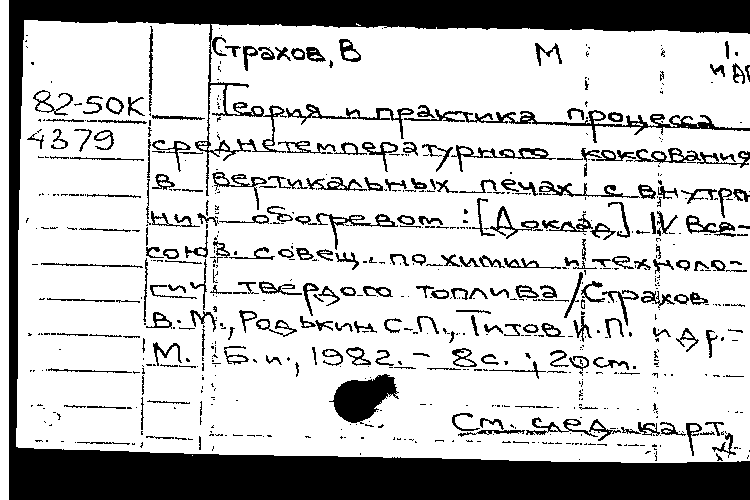 Страхов, В М 1.
и др
82-50К Теория и практика процесса
4379 среднетемпературного коксования
в вертикальных печах с внутрен
ним обогревом : [Доклад]. IV Все-
союз. совещ. по химии и техноло-
гии твердого топлива / Страхов
В.М., Родькин С.П., Титов Н.П. и др.-
М. : Б.и., 1982. - 8 с. ; 20 cm.
См. след. карт.